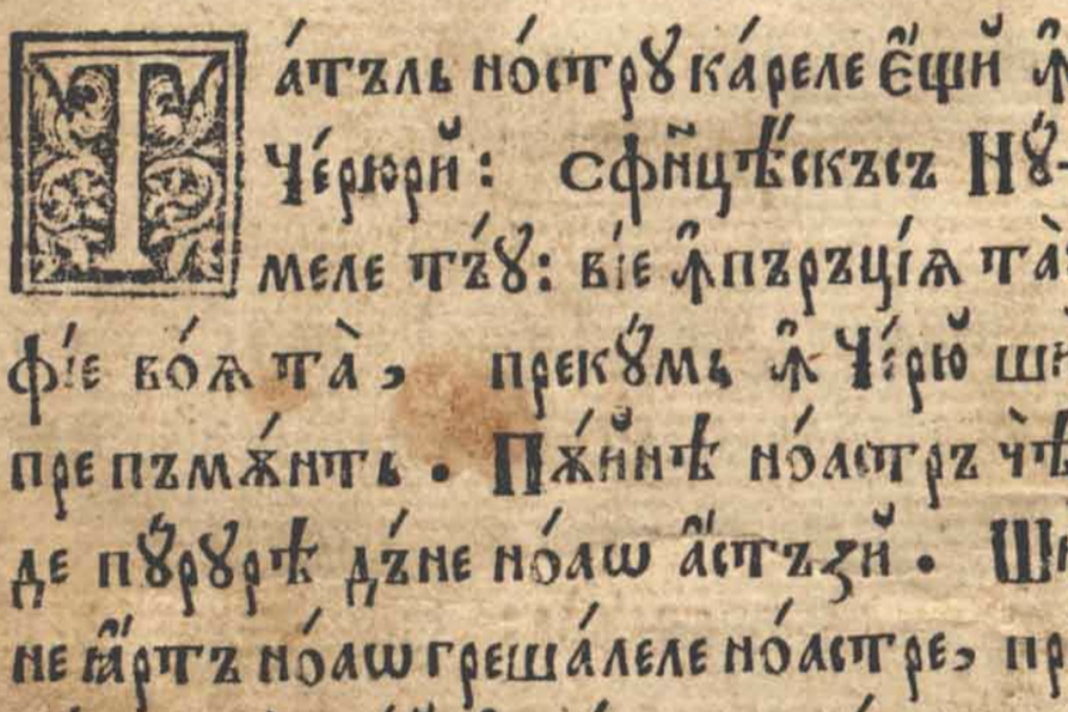 Та́тъль но́стрꙋ ка́реле є҆́щй ꙟ҆
Че́рюрй: Сфинцѣ́скъсъ Нꙋ́-
меле тъ́ꙋ: ві́е ꙟ҆пъръці́ѧ та̀
фі́е во́ѧ та̀, прекꙋ́мь ꙟ҆ Че́рю̆
пре пъмѫ́нть. Пѫ́йнѣ но́астръ
де пꙋ́рꙋрѣ дъ́не но́аѡ а҆́стъзй.
не ꙗ҆́ртъ но́аѡ греша́леле но́астре,